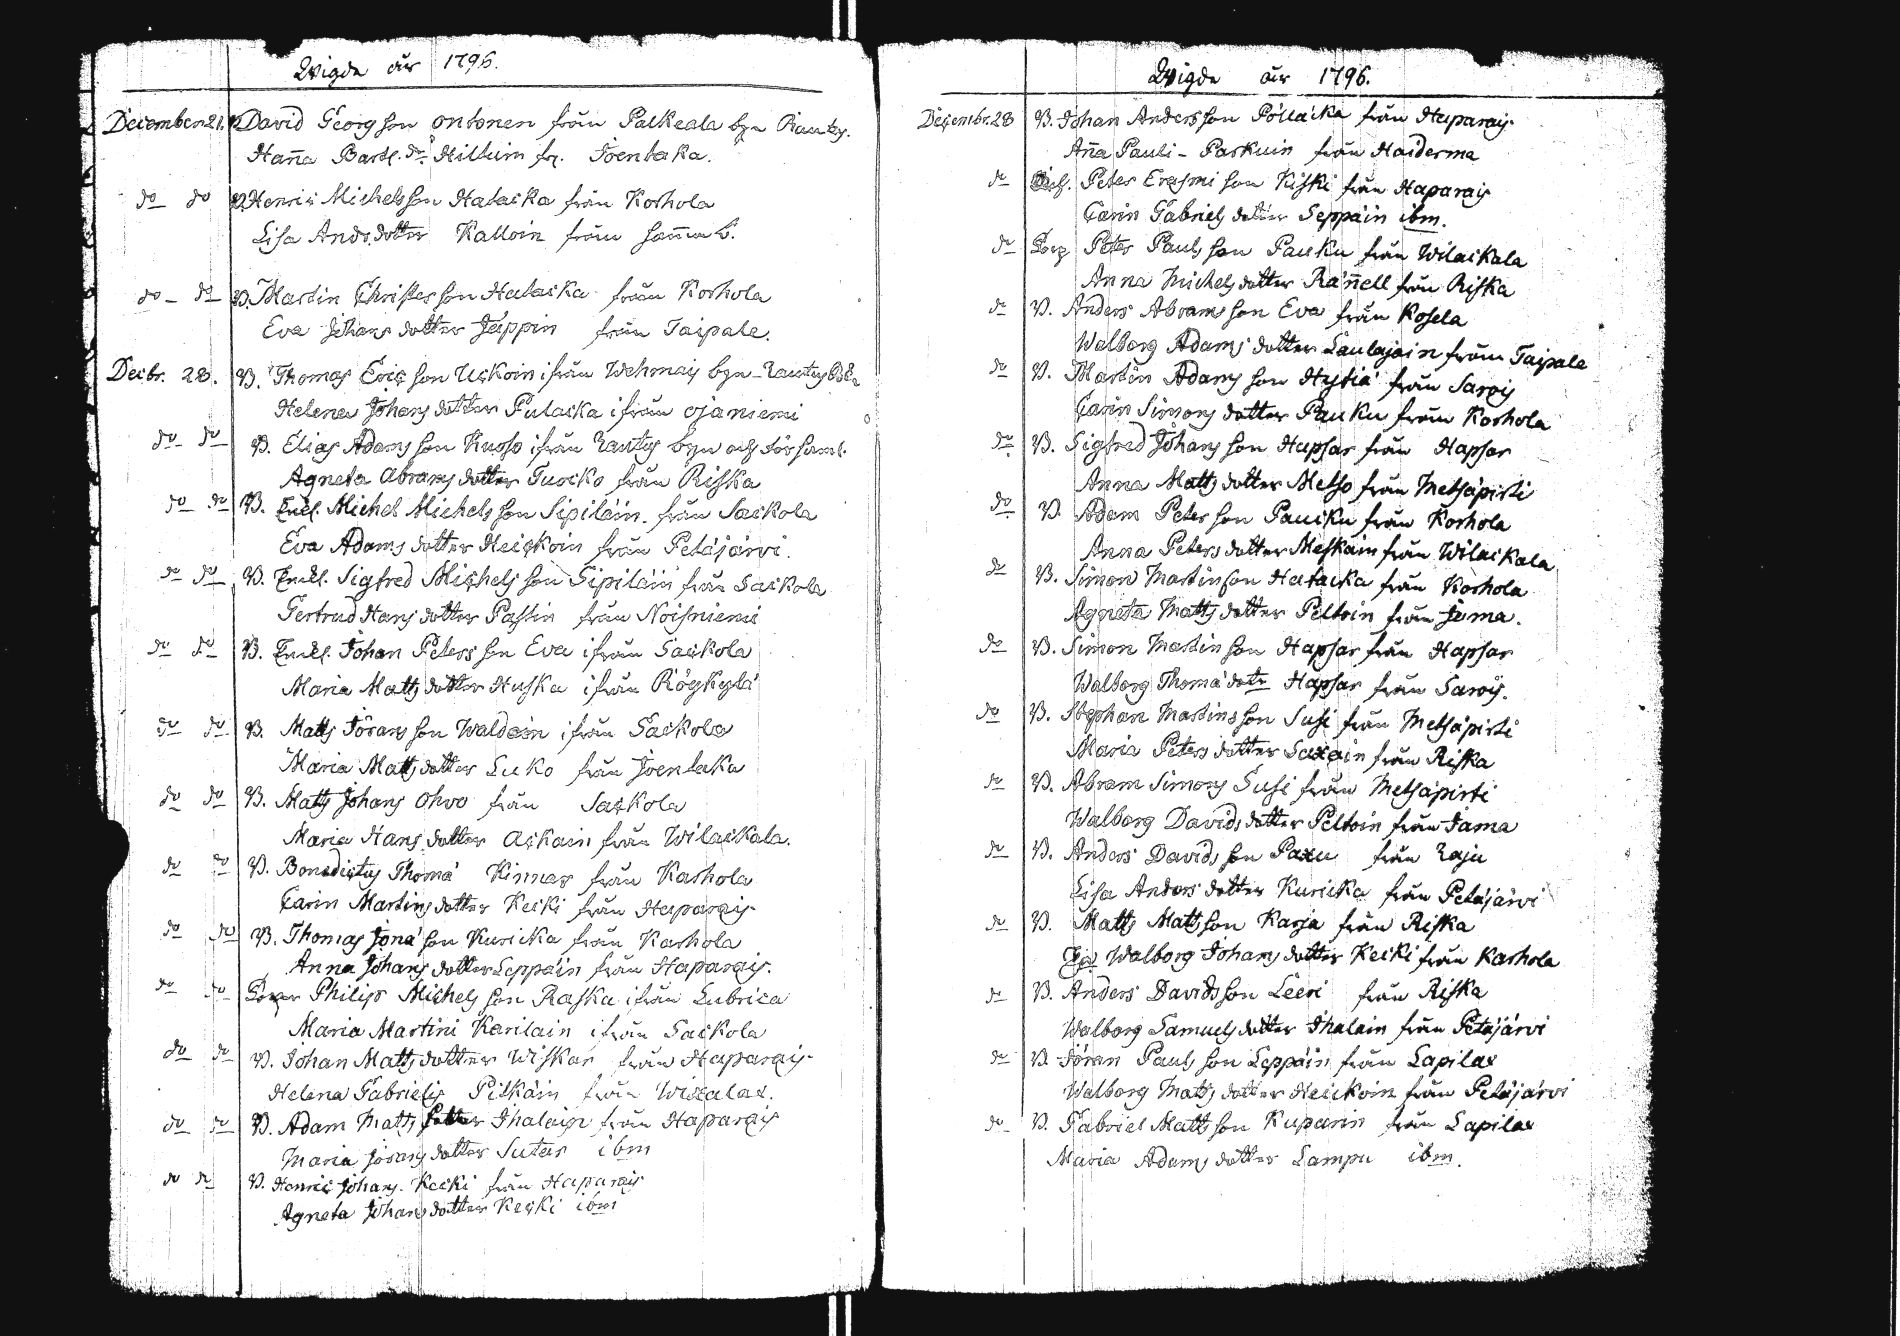 Wigde åhr 1796.
December 21. B. David Georg son Ontonen från Palkeala byn Rautus.
Hanna Bartl. dr. Hiltuin fr. Joentaka.
do do B. Henric Michelsson Hataska från Korhola
Lisa Ands. dotter Kalloin från samma b.
do do B. Martin Christersson Hataska från Korhola
Eva Johans dotter Jäppin från Taipale.
Decbr. 28. B. Thomas Eric son Uskoin ifrån Wehmais byn Rautus
Helena Johans dotter Pulacka ifrån Ojaniemi
do do B. Elias Adams son Kusso ifrån Rautus byn och församl.
Agneta Abrams dotter Tuocko från Riska
do do B. Enkl. Michel Michels son Sipiläin från Sackola
Eva Adams dotter Heiskoin från Petäjärvi.
do do B. Enkl. Sigfred Michels son Sipiläin från Sackola
Gertrud Hans dotter Passin från Noisniemi
do do B. Enkl. Johan Peters son Eva ifrån Sackola
Maria Matts dotter Huska ifrån Röykylä
do do B. Matts Jörans son Waldain ifrån Sackola
Maria Matts dotter Luko från Joentaka
do do B. Matts Johans Ohvo från Sackola
Maria Hans dotter Ackain från Wilackala.
do do B. Benedictus Thomä Kinnar från Karhola
Carin Martins dotter Kecki från Haparais
do do B. Thomas Jona son Kuricka från Karhola
Anna Johans dotter Leppäin från Haparais.
do do Philip Michels son Raska ifrån Lubrica
Maria Martini Karilain ifrån Sackola
do do B. Johan Matts dotter Wiskar från Haparais
Helena Gabrielis Pitkäin från Wixalax.
do do B. Adam Matts Ihalain från Haparais
Maria Jörans dotter Sutar ibm
do do B. Henric Johans. Kecki från Haparais
Agneta Johans dotter Kecki ibm
Wigde åhr 1796.
Decembr. 28 B. Johan Anders son Pölläcka från Haparais
Anna Pauli Paskuin från Haiderma
do Peter Erasmi son Kiski från Haparais
Carin Gabriels dotter Seppäin ibm.
do Peter Pauls son Pauku från Wilackala
Anna Michels dotter Rännell från Riska
do B. Anders Abrams son Eva från Kosela
Walborg Adams dotter Laulajain från Taipale
do B. Martin Adams son Hytiä från Sarois
Carin Simons dotter Pauku från Korhola
do B. Sigfred Johans son Hapsar från Hapsar
Anna Matts dotter Metso från Metsäpirti
do B. Adam Peter son Paucku från Korhola
Anna Peters dotter Meskäin från Wilackala
do B. Simon Martinson Hatacka från Korhola
Agneta Matts dotter Peltoin från Jama.
do B. Simon Martin son Hapsar från Hapsar
Walborg Thomä dotr Hapsar från Sarois.
do B. Stephan Martins son Susi från Metsäpirti
Maria Peters dotter Saxain från Riska
do B. Abram Simons Susi från Metsäpirti
Walborg Davids dotter Peltoin från Jama
do B. Anders Davids son Paxu från Raju
Lisa Anders dotter Kuricka från Petäjärvi
do B. Matts Matts son Karja från Riska
Walborg Johans dotter Kecki från Karhola
do B. Anders Davids son Leeri från Riska
Walborg Samuels dotter Ihalain från Petäjärvi
do B. Jöran Pauls son Leppäin från Lapilax
Walborg Matts dotter Heickoin från Petäjärvi
do B. Gabriel Matts son Kuparin från Lapilax
Maria Adams dotter Lampu ibm.